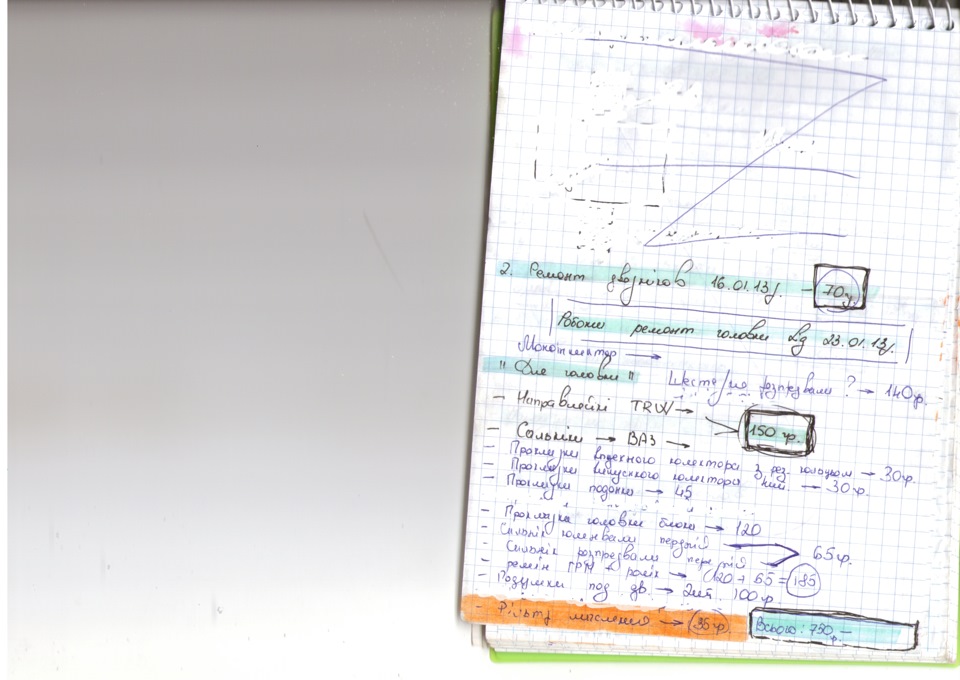 2. Ремонт двожніков 16.01.13р. – 70г.
Роботи ремонт головки Од 23.01.13р.
Моноінжектор →
"Для головки" Шестерню розпредвала ? → 140 гр.
– Направлейкі TRW →
150 гр.
– Сальніки → ВАЗ →
– Прокладки впускного колектора з рез. кольцом → 30гр.
– Прокладки випускного колектора → 30гр.
– Прокладка подона → 45
– Прокладка головки блока → 120
– Сальнік коленвала передній
65гр.
– Сальнік розпредвала передній
– ремін ГРМ + ролік → 120 + 65 = 185
– Подушки под дв. → 2шт. 100гр.
– Фільтр масленій → 35гр. Всього: 750р.–